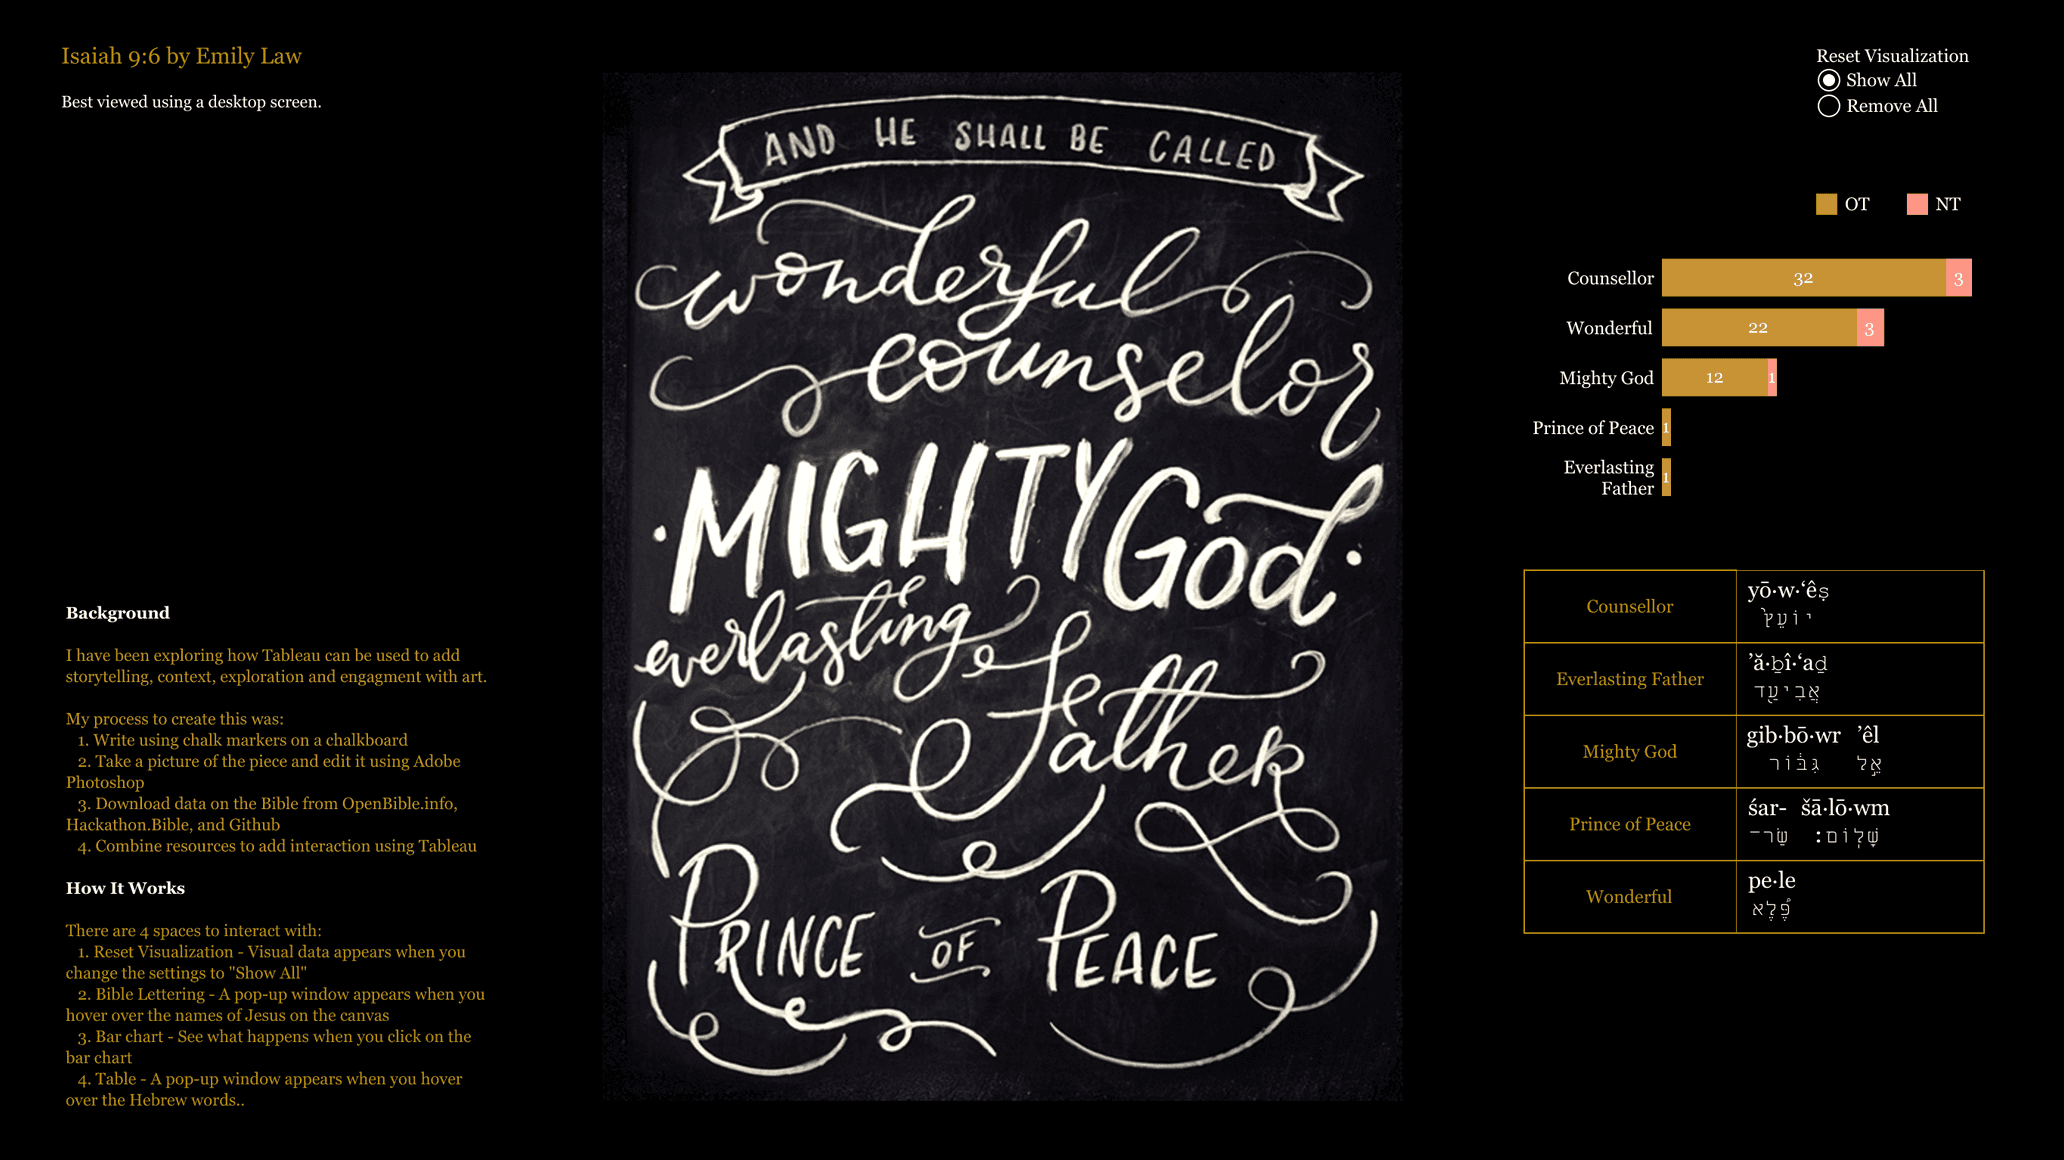 Isaiah 9:6 by Emily Law
Best viewed using a desktop screen.
Background
I have been exploring how Tableau can be used to add
storytelling, context, exploration and engagment with art.
My process to create this was:
1. Write using chalk markers on a chalkboard
2. Take a picture of the piece and edit it using Adobe
Photoshop
3. Download data on the Bible from OpenBible.info,
Hackathon.Bible, and Github
4. Combine resources to add interaction using Tableau
How It Works
There are 4 spaces to interact with:
1. Reset Visualization - Visual data appears when you
change the settings to "Show All"
2. Bible Lettering - A pop-up window appears when you
hover over the names of Jesus on the canvas
3. Bar chart - See what happens when you click on the
bar chart
4. Table - A pop-up window appears when you hover
over the Hebrew words..
AND HE SHALL BE CALLED
wonderful
counselor
·MIGHTY God·
everlasting
Father
PRINCE OF PEACE
Reset Visualization
Show All
Remove All
OT NT
Counsellor 32 3
Wonderful 22 3
Mighty God 12 1
Prince of Peace 1
Everlasting
Father 1
Counsellor
yō·w·‘êṣ
יוֹעֵץ֙
Everlasting Father
’ă·ḇî·‘aḏ
אֲבִיעַ֖ד
Mighty God
gib·bō·wr ’êl
גִּבּ֔וֹר אֵ֣ל
Prince of Peace
śar- šā·lō·wm
שַׂר־ שָׁלֽוֹם׃
Wonderful
pe·le
פֶּ֠לֶא